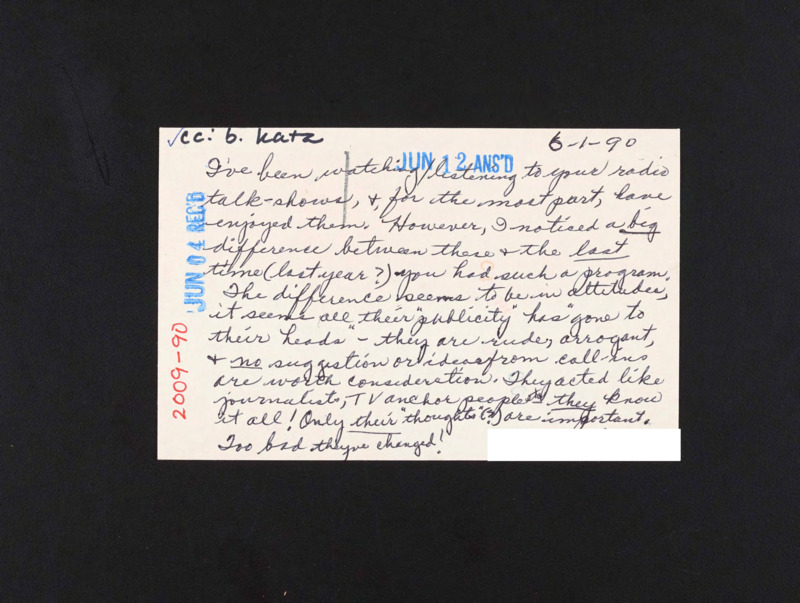 ✓cc: b. katz
6-1-90
JUN 12 ANS'D
JUN 04 REC'D
2009-90
I've been watching/listening to your radio
talk-shows, & for the most part, have
enjoyed them. However, I noticed a big
difference between these & the last
time (last year?) you had such a program.
The difference seems to be in attitudes,
it seems all their "publicity" has "gone to
their heads" - they are rude, arrogant,
& no suggestion or ideas from call-ins
are worth consideration. They acted like
journalists, TV anchor people, they know
it all! Only their "thoughts" (?) are important.
Too bad they've changed!